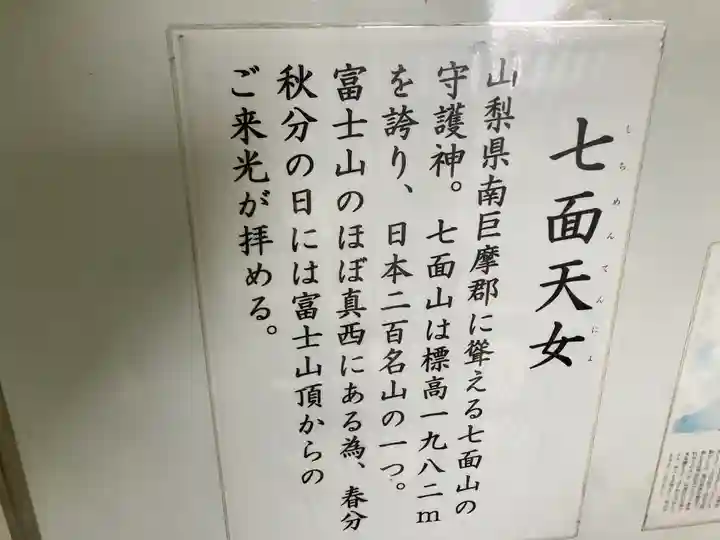 七面天女
しちめんてんにょ
山梨県南巨摩郡に聳える七面山の
守護神。七面山は標高一九八二m
を誇り、日本二百名山の一つ。
富士山のほぼ真西にある為、春分
秋分の日には富士山頂からの
ご来光が拝める。